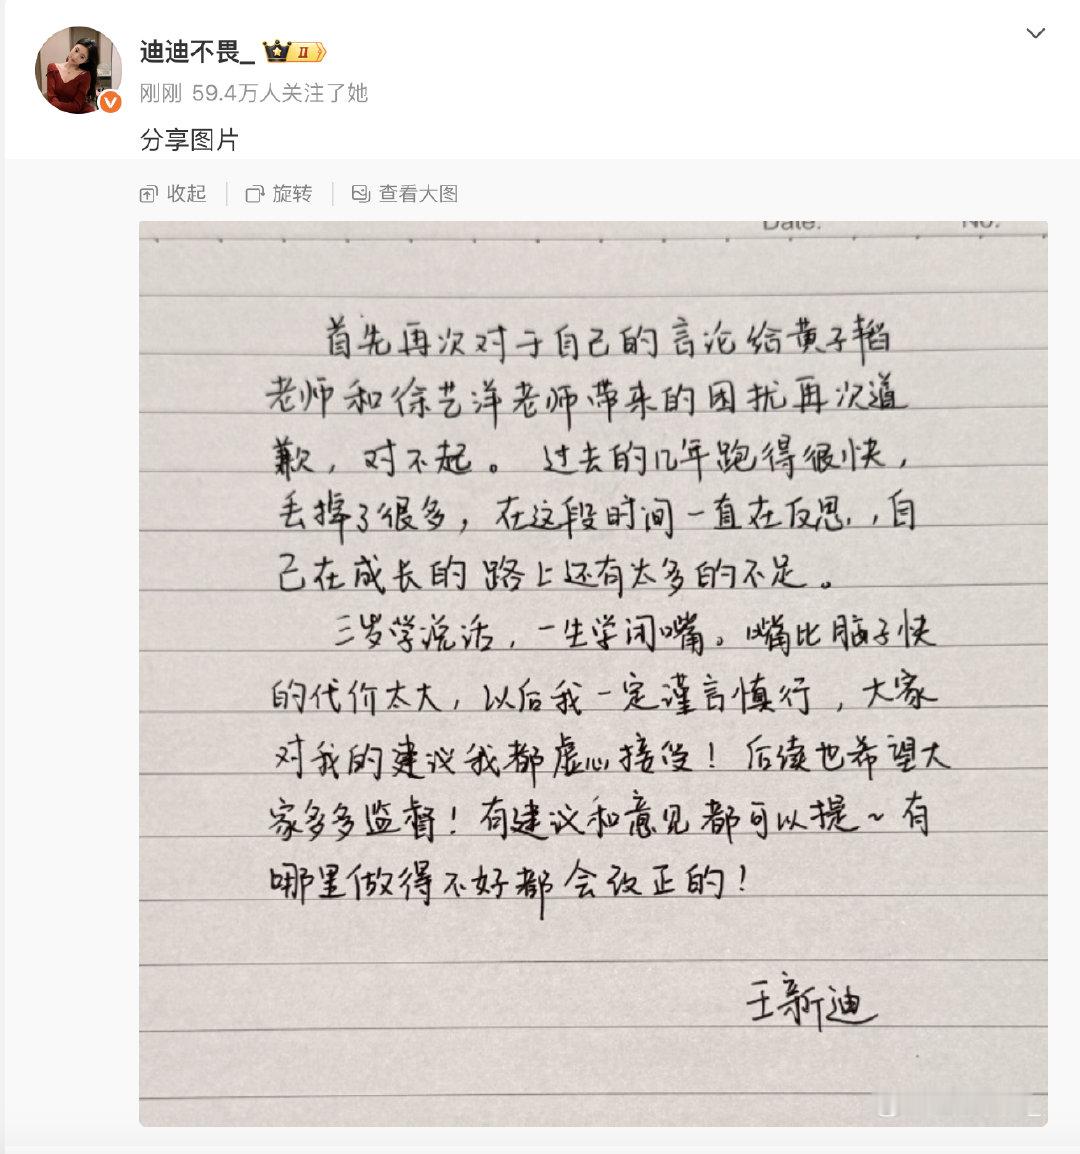 迪迪不畏_ II
刚刚 59.4万人关注了她
分享图片
收起 旋转 查看大图
Date. No.
首先再次对于自己的言论给黄子韬
老师和徐艺洋老师带来的困扰再次道
歉，对不起。过去的几年跑得很快，
丢掉了很多，在这段时间一直在反思，自
己在成长的路上还有太多的不足。
三岁学说话，一生学闭嘴。嘴比脑子快
的代价太大，以后我一定谨言慎行，大家
对我的建议我都虚心接受！后续也希望大
家多多监督！有建议和意见都可以提~有
哪里做得不好都会改正的！
王新迪